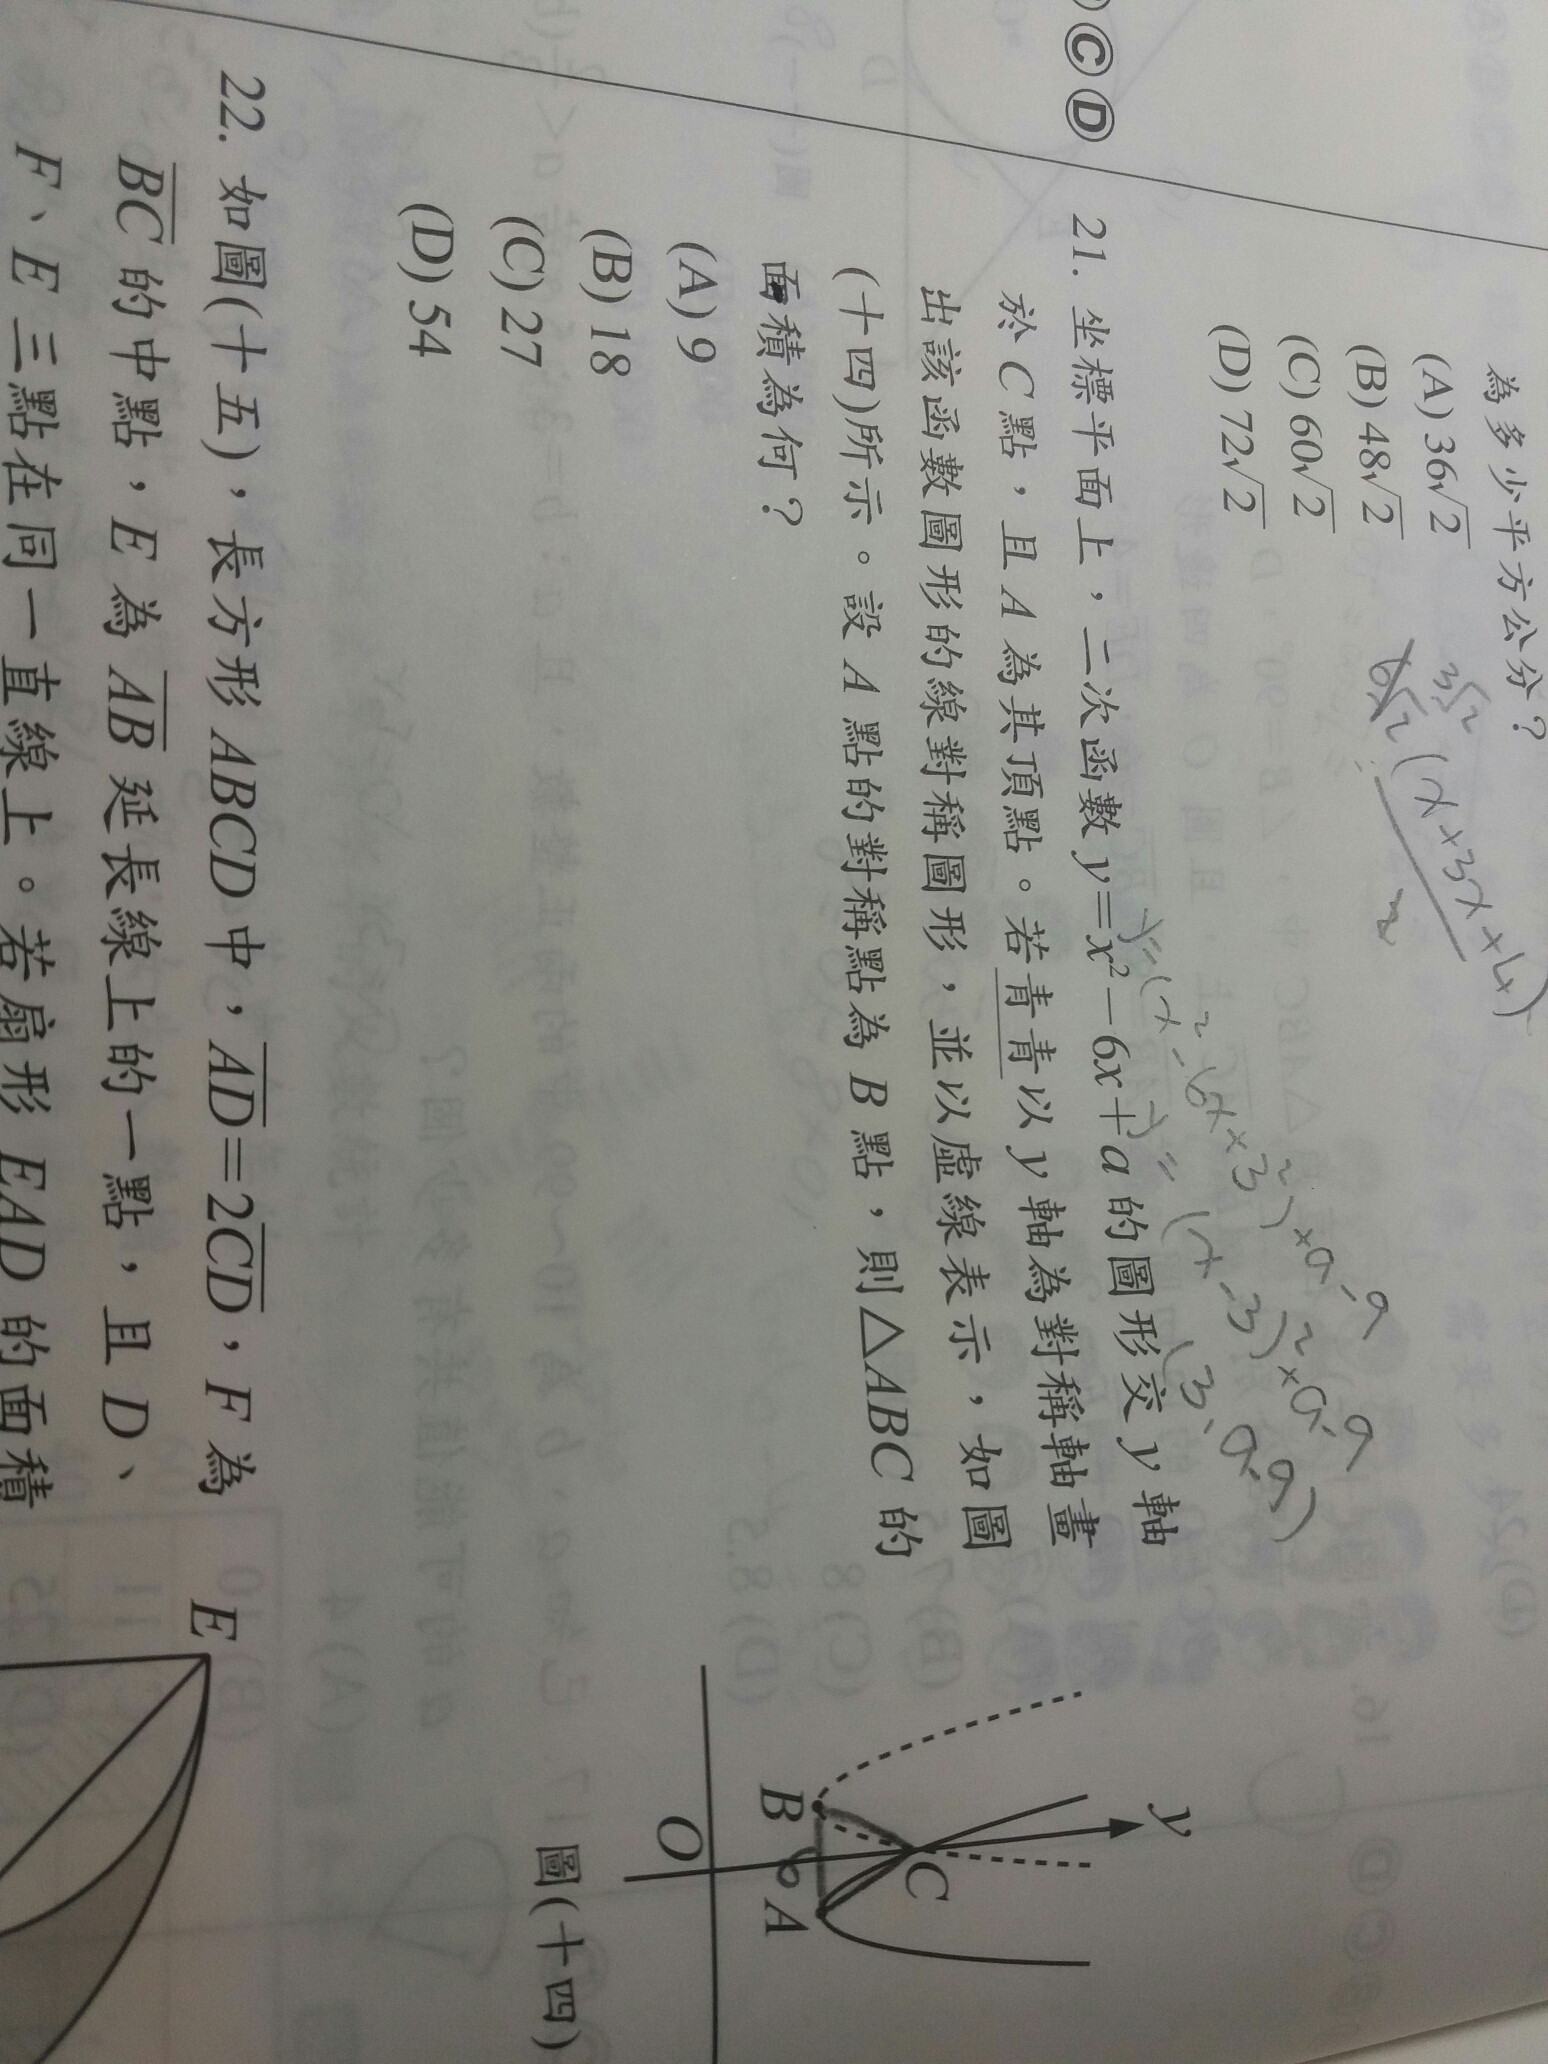 ⒸⒹ
為多少平方公分？
(A) 36√2
(B) 48√2
(C) 60√2
(D) 72√2
3√2
21. 坐標平面上，二次函數 y=x²－6x＋a 的圖形交 y 軸
於 C 點，且 A 為其頂點。若青青以 y 軸為對稱軸畫
出該函數圖形的線對稱圖形，並以虛線表示，如圖
(十四)所示。設 A 點的對稱點為 B 點，則△ABC 的
面積為何？
(A) 9
(B) 18
(C) 27
(D) 54
y
C
B
A
O
圖(十四)
22. 如圖(十五)，長方形 ABCD 中，AD=2CD，F 為
BC 的中點，E 為 AB 延長線上的一點，且 D、
F、E 三點在同一直線上。若扇形 EAD 的面積
E